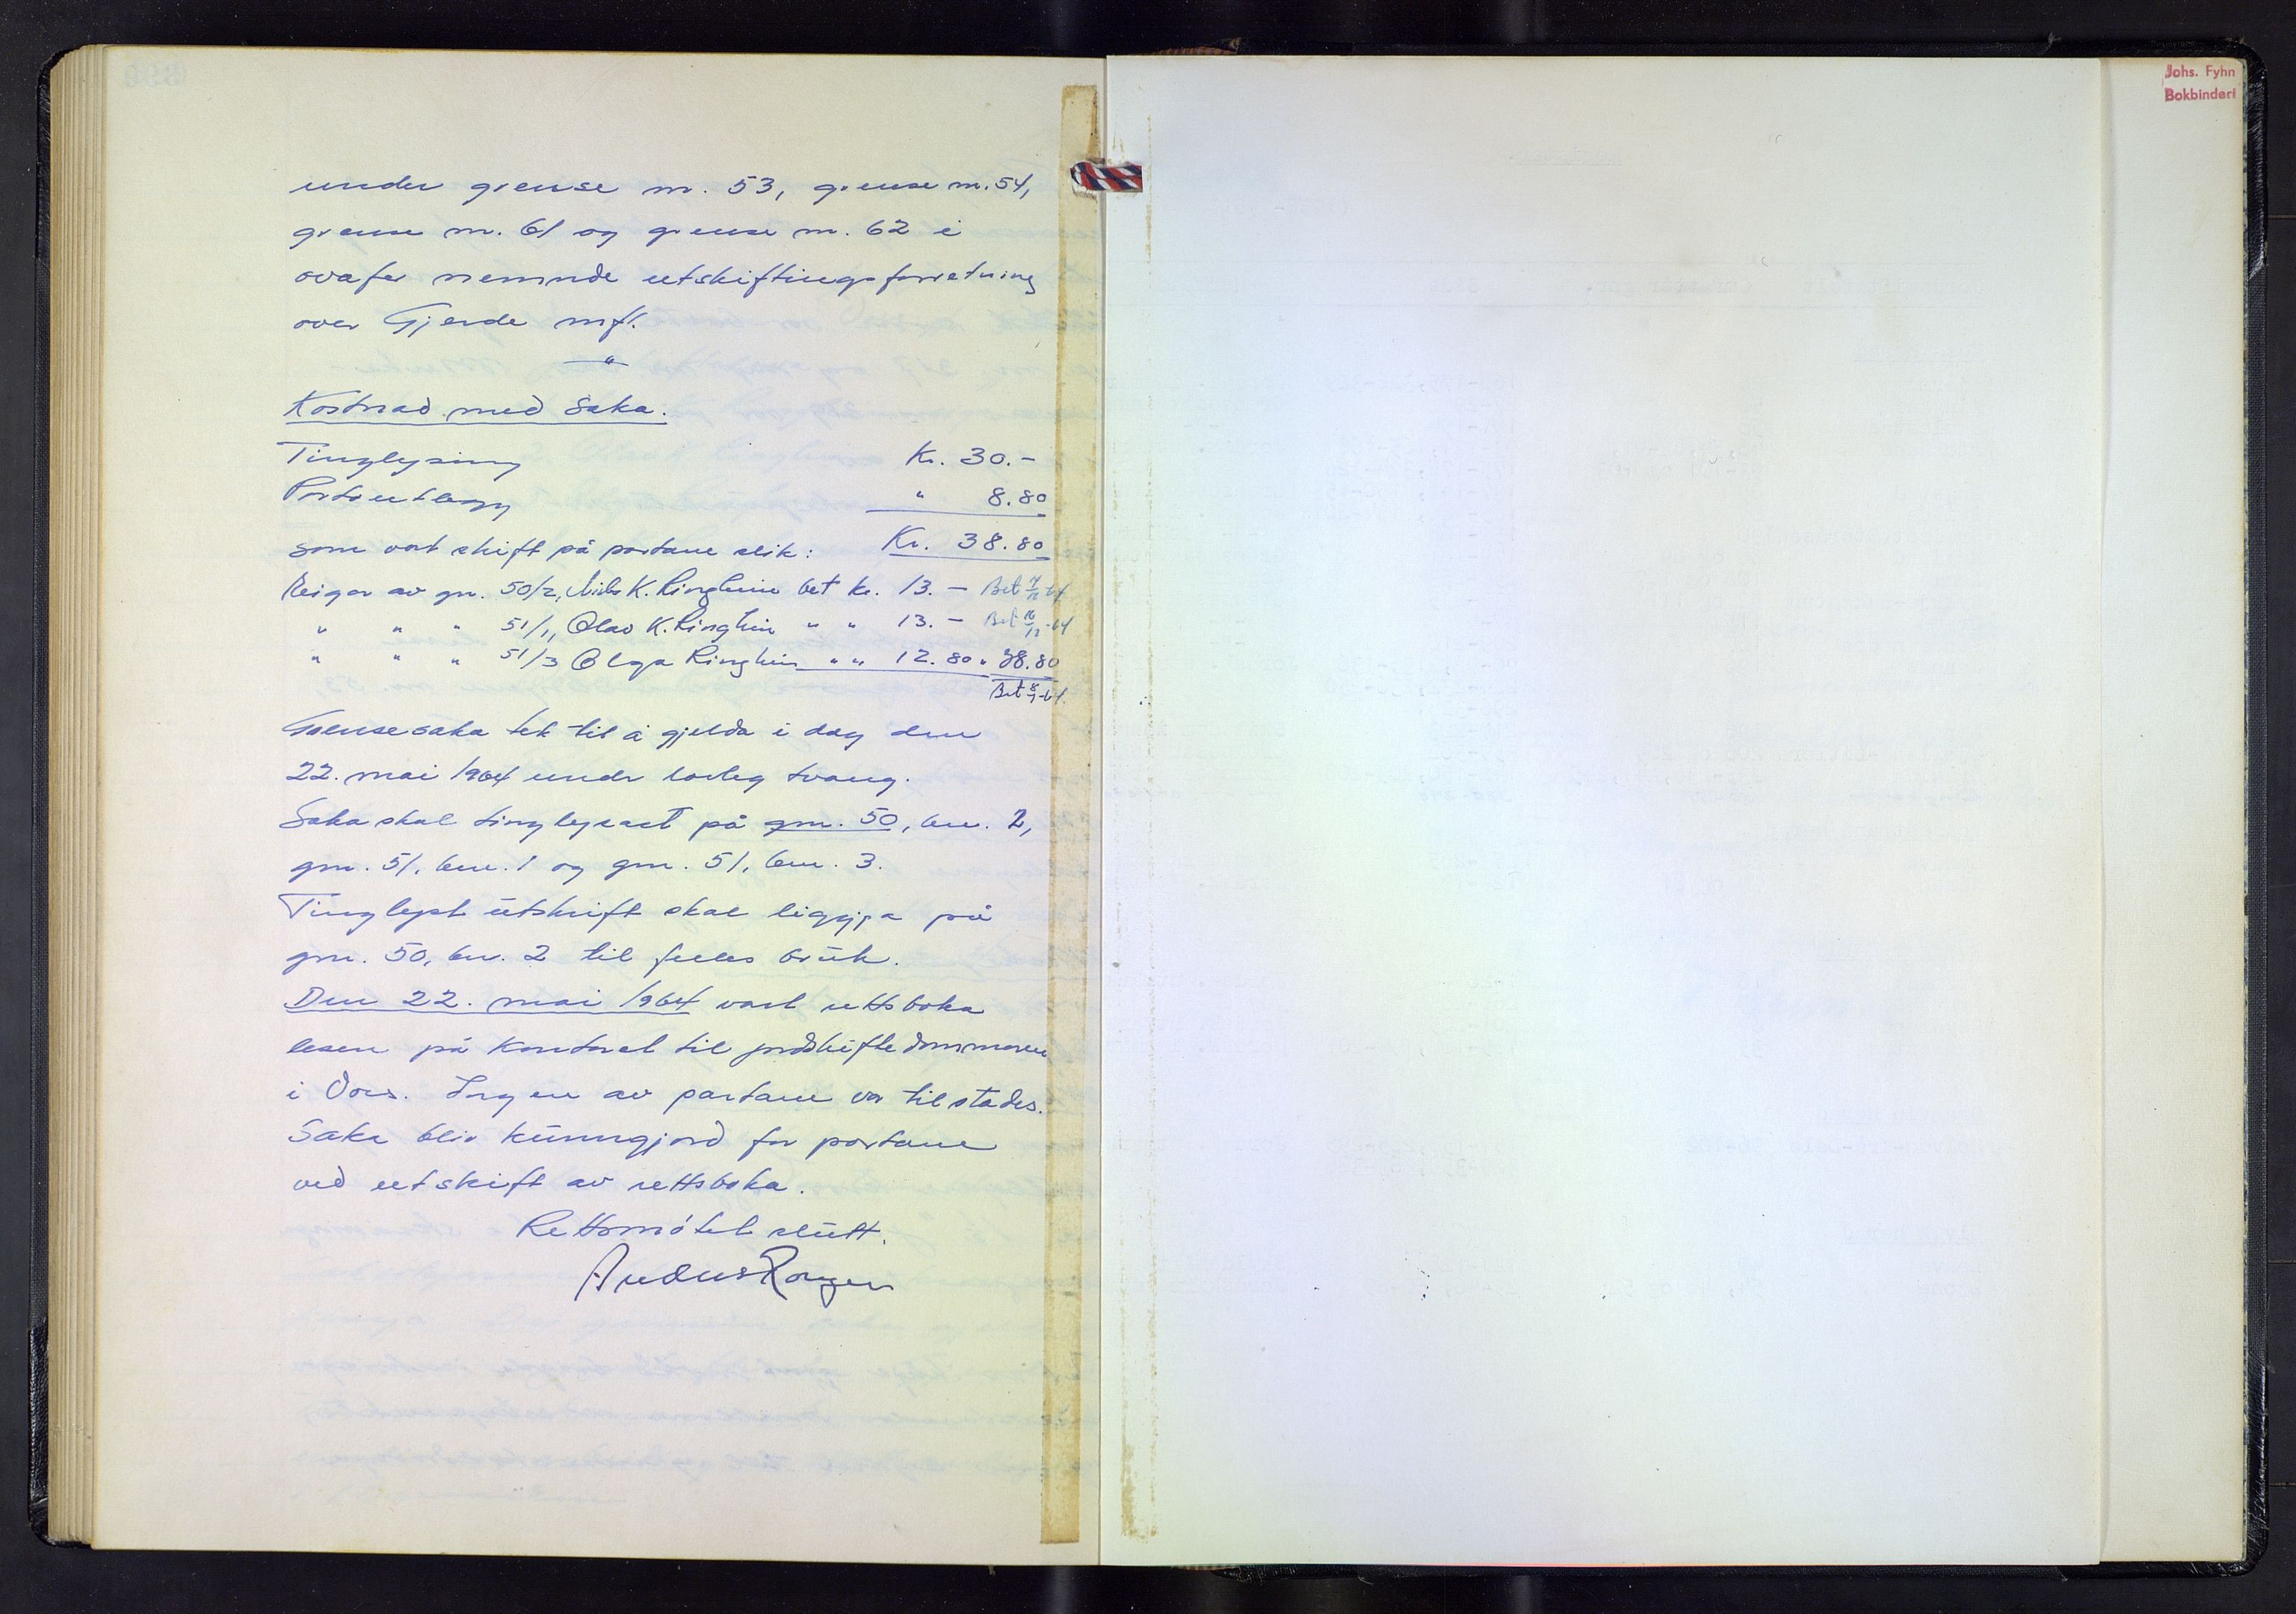 under grense nr. 53, grense nr. 54,
grense nr. 61 og grense nr. 62 i
ovafor nemnde utskiftingsforretning
over Gjerde mfl.
— " —
Kostnad med saka.
Tinglysing Kr. 30.-
Portoutlegg " 8.80
som vart skift på partane slik: Kr. 38.80
Eigar av gnr. 50/2, Nils K. Ringheim bet kr. 13.— Bet
" " " 51/1, Olav K. Ringheim " " 13.— Bet
" " " 51/3 Olga Ringheim " " 12.80 " 38.80
Bet
Grensesaka tek til å gjelda i dag den
22. mai 1964 under lovleg tvang.
Saka skal tinglysast på gnr. 50, bnr. 2,
gnr. 51, bnr. 1 og gnr. 51, bnr. 3.
Tinglyst utskrift skal liggja på
gnr. 50, bnr. 2 til felles bruk.
Den 22. mai 1964 vart rettsboka
lesen på kontoret til jordskiftedommaren
i Voss. Ingen av partane var tilstades.
Saka blir kunngjord for partane
ved utskrift av rettsboka.
Rettsmøtet slutt.
Johs. Fyhn
Bokbinderi